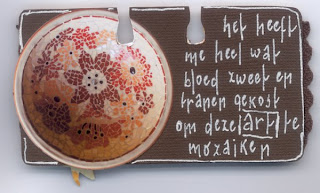 het heeft
me heel wat
bloed zweet en
tranen gekost
om deze art te
mozaiken